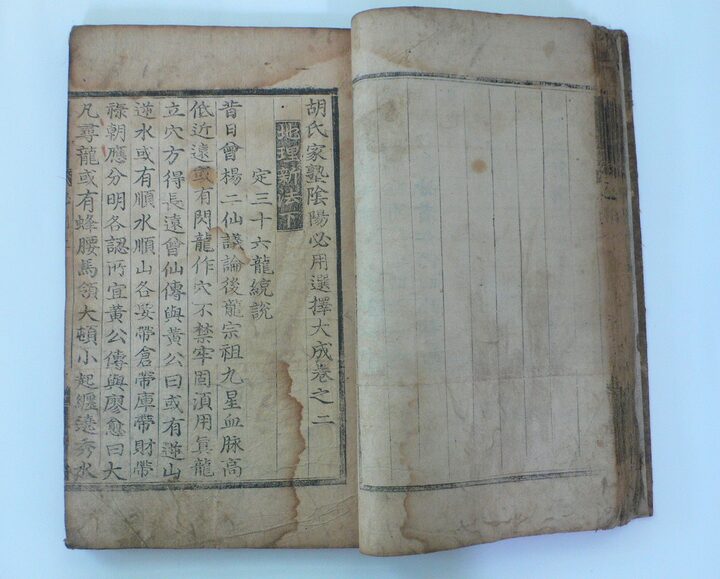 胡氏家塾陰陽必用選擇大成卷之二
地理新法下
定三十六龍統說
昔日曾揚二仙議論後龍宗祖九星血脉高
低近遠或有閃龍作穴不禁牢固湏用眞龍
立穴方得長遠曾仙傳與黃公曰或有逆山
逆水或有順水順山各妥帶倉帶庫帶財帶
祿朝應分明各認所宜黃公傳與廖愈曰大
凡尋龍或有蜂腰馬領大頓小起纒遶秀水